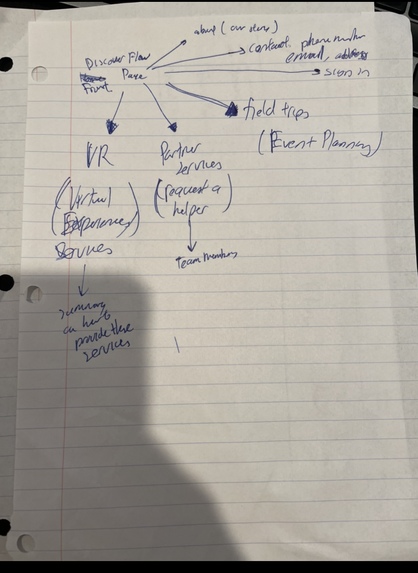 about (our story)
contact. phone number
email, address
sign in
Discover Flow
Front Page
field trips
(Event Planning)
VR
(Virtual
Experiences)
Services
Partner
services
(request a
helper)
Team members
summary
on how to
provide these
services